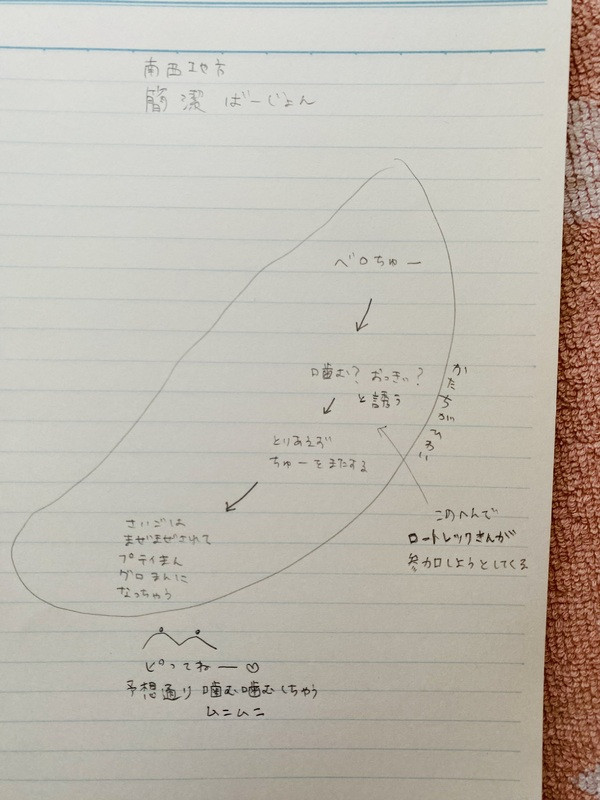 南西地方
簡潔 ばーじょん
ベロちゅー
噛む? おっきい?
と誘う
とりあえず
ちゅーをまたする
さいごは
まぜまぜされて
プティまん
グロまんに
なっちゃう
かたちが
このへんで
ロートレックさんが
参加しようとしてくる
ピってねー♡
予想通り噛む噛むしちゃう
ムニムニ